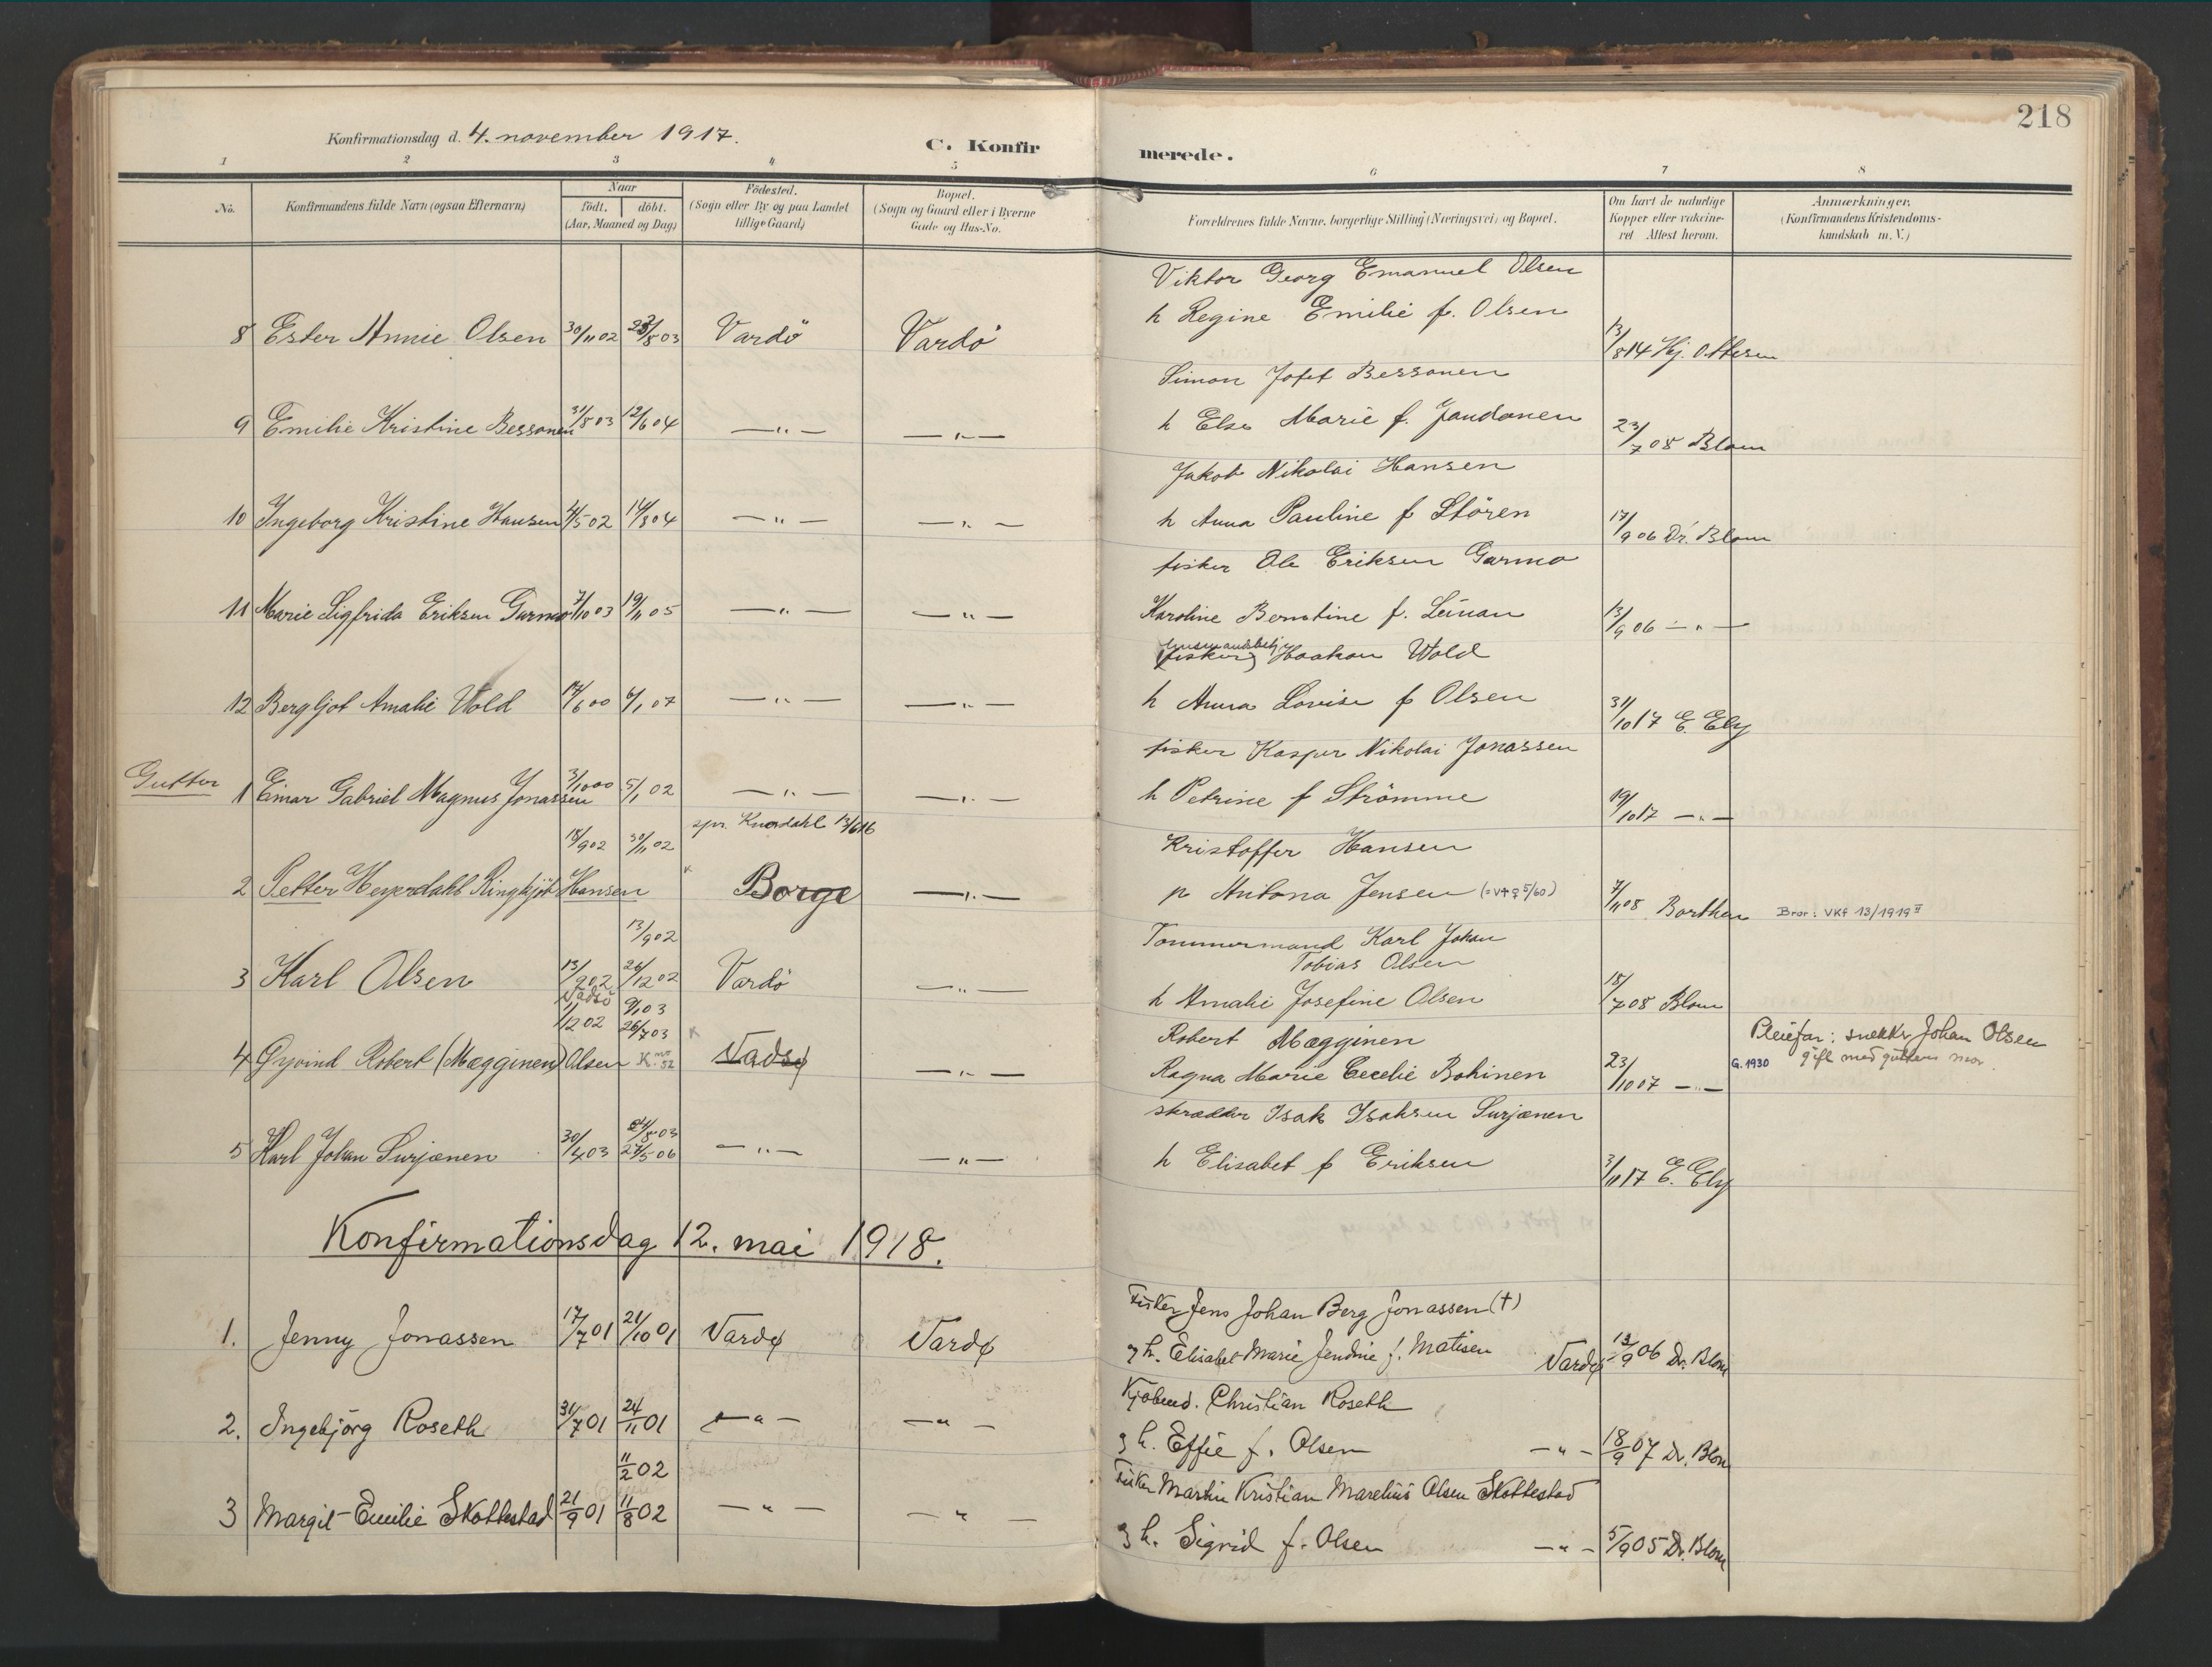 218
Konfirmationsdag d. 4. november 1917.
C. Konfirmerede.
1 2 3 4 5 6 7 8
No.
Konfirmandens fulde Navn (ogsaa Efternavn)
Naar
födt. döbt.
(Aar, Maaned og Dag)
Födested.
(Sogn eller By og paa Landet
tillige Gaard)
Bopæl.
(Sogn og Gaard eller i Byerne
Gade og Hus-No.
Forældrenes fulde Navne, borgerlige Stilling (Næringsvei) og Bopæl.
Om havt de naturlige
Kopper eller vakcine-
ret Attest herom.
Anmærkninger.
(Konfirmandens Kristendoms-
kundskab m. V.)
Viktor Georg Emanuel Olsen
h Regine Emilie f. Olsen
8 Ester Annie Olsen 30/11 02 /8 03 Vardö Vardö 13/8 14 Hj. Ottesen
Simon Jofet Bessonen
9 Emilie Kristine Bessonen 31/8 03 12/6 04 — " — — " — h Else Marie f. Jaudonen 23/7 08 Blom
Jakob Nikolai Hansen
10 Ingeborg Kristine Hansen 4/5 02 14/3 04 — " — — " — h Anna Pauline f Stören 17/9 06 Dr. Blom
fisker Ole Eriksen Garmo
11 Marie Sigfrida Eriksen Garmo 7/10 03 19/11 05 — " — — " — Karoline Berntine f. Leinan 13/9 06 — " —
(fisker) Haakon Wold
12 Bergljot Amalie Wold 17/6 00 6/1 07 — " — — " — h Anna Lovise f Olsen 31/10 17 E. Ely
fisker Kasper Nikolai Jonassen
Gutter
1 Einar Gabriel Magnus Jonassen 3/10 00 5/1 02 — " — — " — h Petrine f Strömme 19/10 17 — " —
18/9 02 30/11 02 13/6 16
Kristoffer Hansen
2 Petter Heyerdahl Ringkjøb Hansen × Borge — " — p Antona Jensen (= V+♀ 5/60) 7/11 08 Borthen Bror: VKf 13/1919 II
13/9 02
Tommermand Karl Johan
Tobias Olsen
3 Karl Olsen 13/9 02 26/12 02 Vardö — " — h Amalie Josefine Olsen 18/7 08 Blom
Vadsö
11/12 02 9/1 03
26/7 03
Robert Mægginen
Pleiefar: snekkr Johan Olsen
gift med guttens mor.
4 Øyvind Robert (Mægginen) Olsen × Vadsø — " — Ragna Marie Cecelie Bohinen 23/10 07 — " — G. 1930
skrædder Isak Isaksen Surjænen
24/8 03
5 Karl Johan Surjænen 30/4 03 27/5 06 — " — — " — h Elisabet f Eriksen 3/11 17 E. Ely
Konfirmationsdag 12. mai 1918.
Fisker Jens Johan Berg Jonassen (†)
1. Jenny Jonassen 17/7 01 21/10 01 Vardø Vardø g h. Elisabet Marie Jendine f. Matisen Vardø 13/9 06 Dr. Blom
Kjøbmd. Christian Roseth
2. Ingebjörg Roseth 31/7 01 24/11 01 — " — — " — g h. Effie f. Olsen — " — 18/9 07 Dr. Blom
11/2 02
Fisker Martin Kristian Marelius Olsen Skottestad
3 Margit-Emilie Skottestad 21/9 01 11/8 02 — " — — " — g h. Sigrid f. Olsen — " — 5/9 05 Dr. Blom